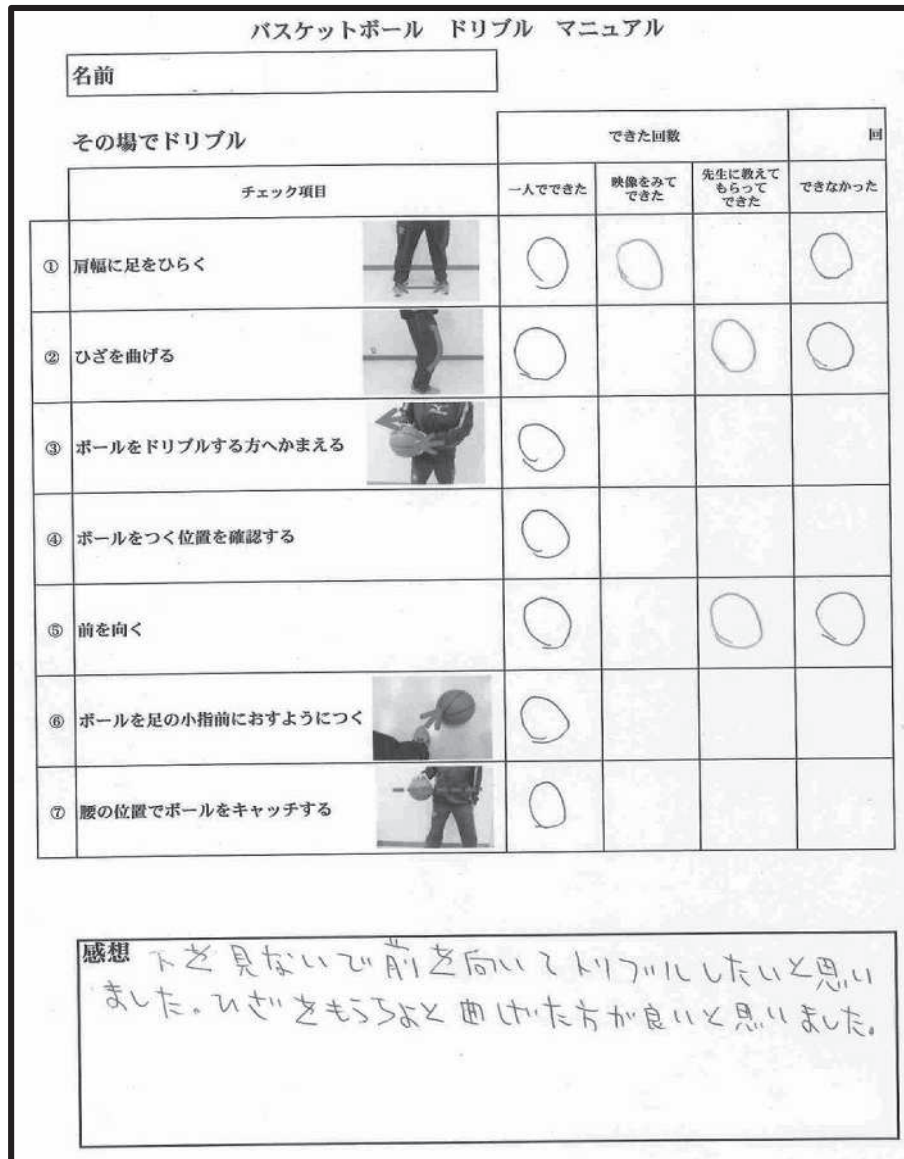 バスケットボール ドリブル マニュアル
名前
その場でドリブル
できた回数 回
チェック項目 一人でできた 映像をみて できた 先生に教えて もらって できた できなかった
① 肩幅に足をひらく
② ひざを曲げる
③ ボールをドリブルする方へかまえる
④ ボールをつく位置を確認する
⑤ 前を向く
⑥ ボールを足の小指前におすようにつく
⑦ 腰の位置でボールをキャッチする
感想 下を見ないで前を向いてドリブルしたいと思い
ました。ひざをもうちょと曲げた方が良いと思いました。